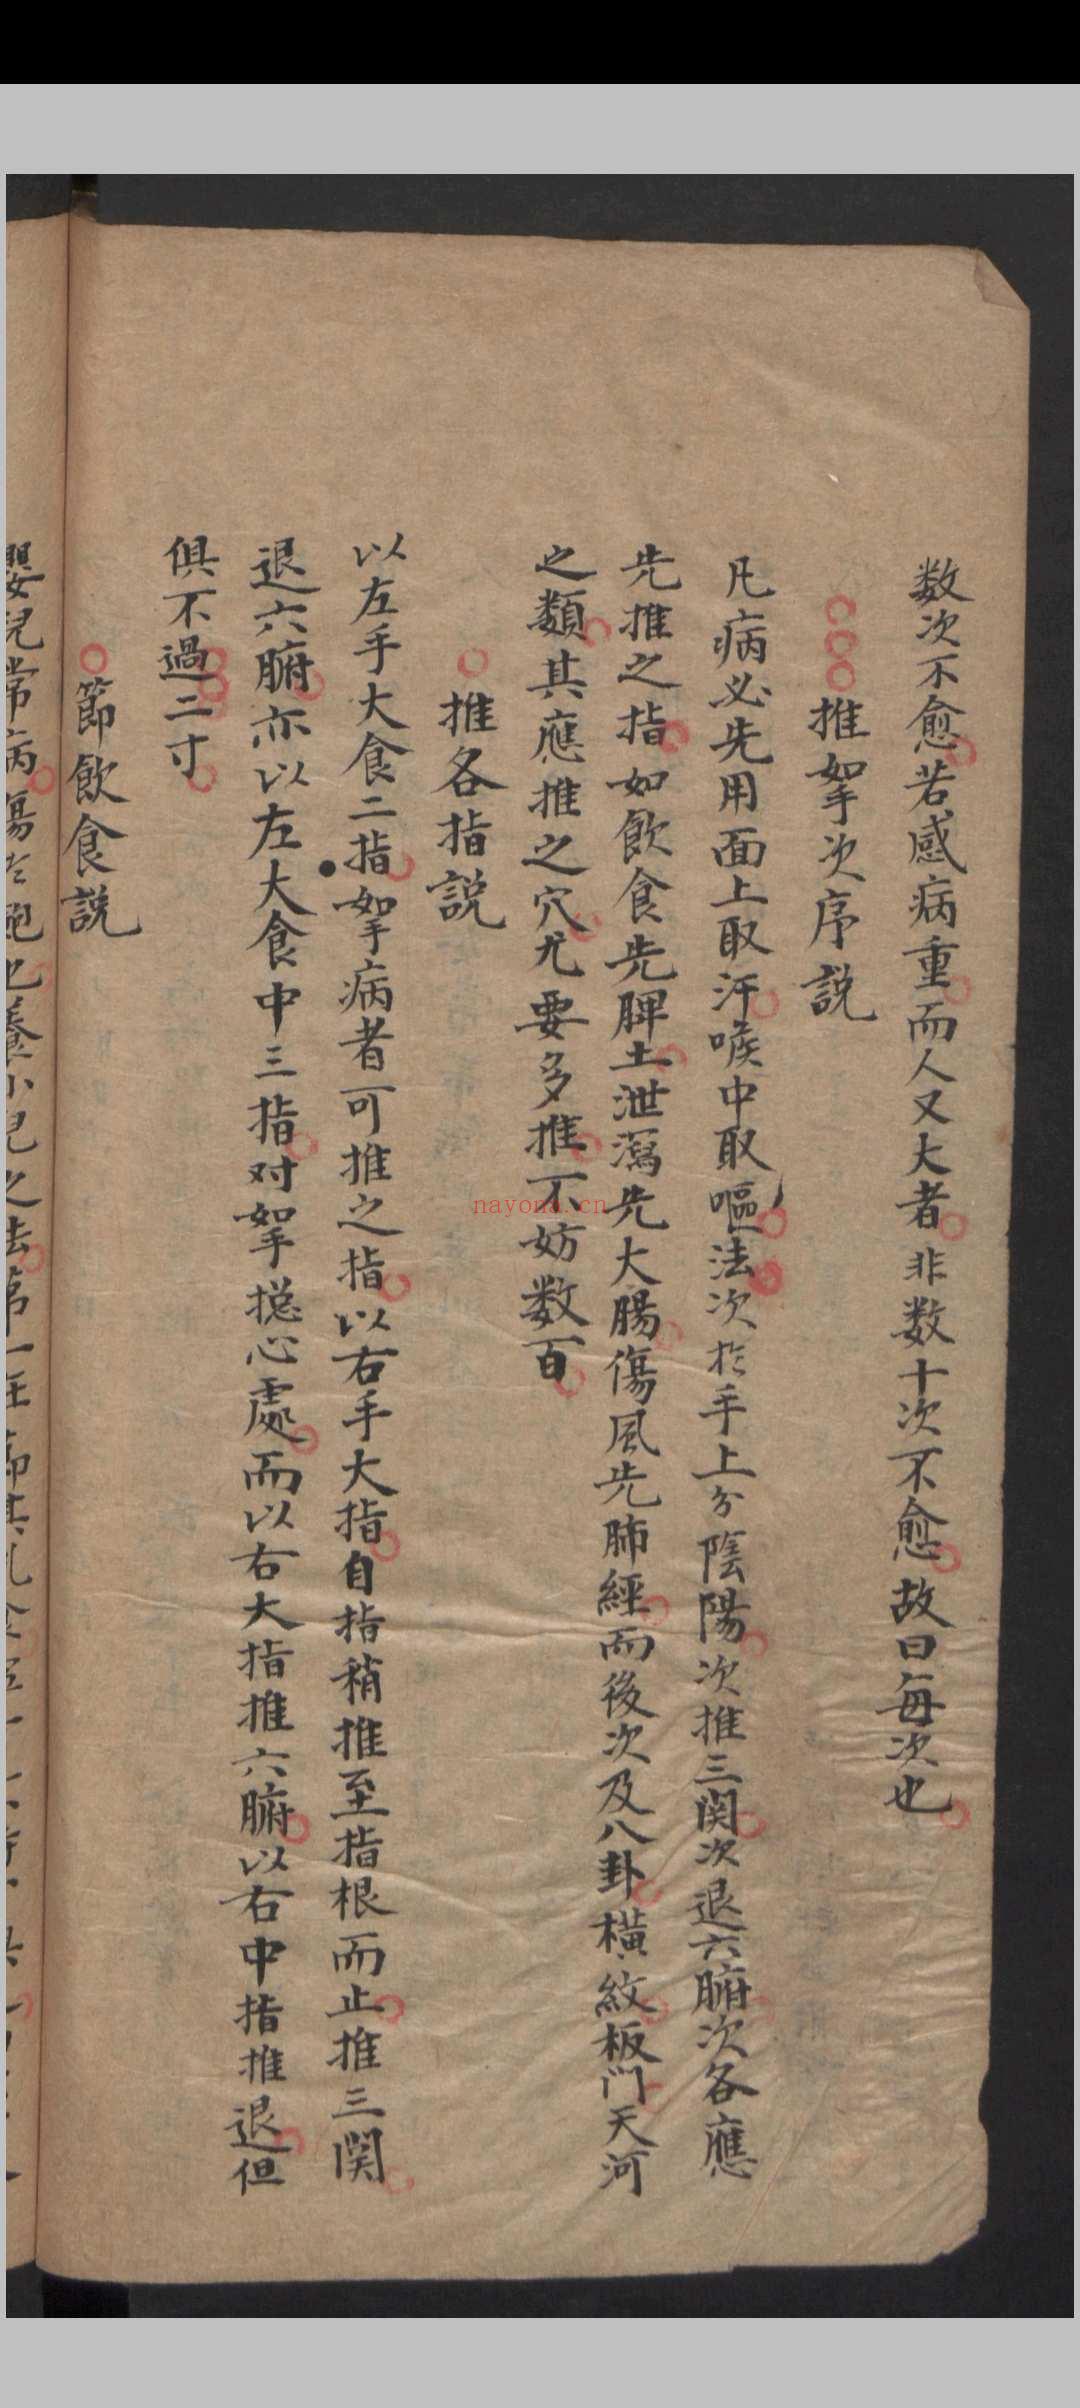 数次不愈若感病重而人又大者非数十次不愈故曰每次也
推拏次序説
凡病必先用面上取汗喉中取嘔法次扵手上分陰陽次推三関次退六腑次各應
先推之指如飲食先脾土泄瀉先大腸傷風先肺經而後次及八卦橫紋板门天河
之類其應推之穴尤要多推不妨数百
推各指説
以左手大食二指拏病者可推之指以右手大指自指稍推至指根而止推三関
退六腑亦以左大食中三指对拏揔心處而以右大指推六腑以右中指推退但
俱不過二寸
節飲食説
嬰兒常病傷扵飽也養小兒之法第一在節其乳食
nayona.cn